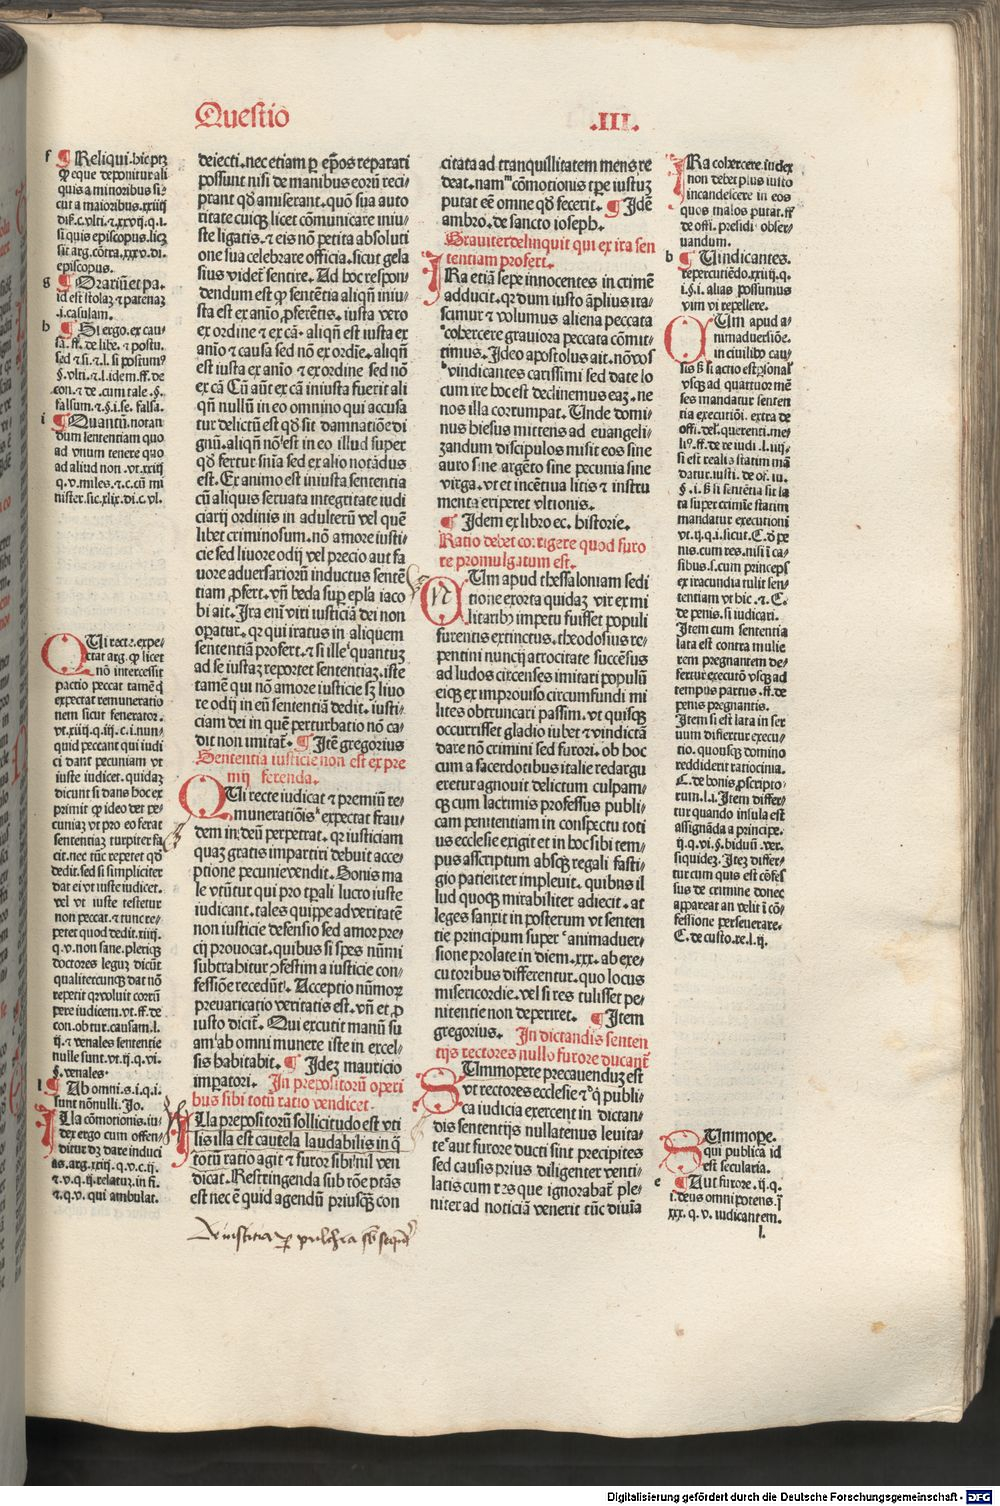 Questio
.III.
f ¶ Reliqui. hic ptꝫ
ꝙ eque deponitur ali
quis a minoribus si⸗
cut a maioribus. xxiiij
si quis episcopus. licꝫ
sit arg. cōtra. xxxv. di.
episcopus.
g ¶ Orariū et pa.
id est stolaꝫ ⁊ patenaꝫ
.i. casulam.
h ¶ Si ergo. ex cau⸗
sa. ff. de libe. ⁊ postu.
falsum. ⁊ §. i. se. falsa.
i ¶ Quantū. notan
dum sententiam quo
ad vnum tenere quo
ad aliud non. vt. xxiij
q. v. miles. ⁊ c. cū mi
nister. sic. xlix. di. c. vl.
QUi recte. expe⸗
ctat arg. ꝙ licet
nō intercessit
pactio peccat tamē ꝗ
expectat remuneratio
nem sicut fenerator.
vt. xiiij. q. iij. c. i. nun⸗
quid peccant qui iudi
ci dant pecuniam vt
iuste iudicet. quidaꝫ
dicunt si dans hoc ex
primit ꝙ ideo det pe⸗
cuniaꝫ vt pro eo ferat
sententiaꝫ turpiter fa
cit. nec tūc repetet qđ
dedit. sed si simpliciter
dat ei vt iuste iudicet.
vel vt iuste testetur
non peccat. ⁊ tunc re⸗
petet quod dedit. xiiij.
q. v. non sane. pleriqꝫ
doctores leguꝫ dicūt
qualitercunqꝫ dat nō
repetit qꝛ voluit corrū
pere iudicem. vt. ff. de
con. ob tur. causam. l.
ij. ⁊ venales sententie
nulle sunt. vt. ij. q. vi.
§. venales.
l ¶ Ab omni. s. i. q. i.
sunt nōnulli. Jo.
ILla cōmotionis. iu⸗
dex ergo cum offen⸗
ditur dꝫ dare induci
as. arg. xxiij. q. v. c. ij.
⁊. v. q. ij. relatur. in fi.
⁊. q. v. qui ambulat.
deiecti. nec etiam ꝑ ep̄os reparati
possunt nisi de manibus eorū reci⸗
piant qđ amiserant. quō sua auto
ritate cuiqꝫ licet cōmunicare iniu⸗
ste ligatis. ⁊ eis nō petita absoluti
one sua celebrare officia. sicut gela
sius videt̄ sentire. Ad hoc respon⸗
dendum est ꝙ sentētia aliqn̄ iniu⸗
sta est ex anīo ꝓferētis. iusta vero
ex ordine ⁊ ex cā. aliqn̄ est iusta ex
anīo ⁊ causa sed nō ex ordīe. aliqn̄
est iusta ex anīo ⁊ ex ordine sed nō
ex cā Cū aūt ex cā iniusta fuerit ali
qn̄ nullū in eo omnino qui accusa
tur delictū est qđ sit damnatiōe di
gnū. aliqn̄ nō est in eo illud super
qđ fertur sn̄ia sed ex alio notādus
est. Ex animo est iniusta sententia
cū aliquis seruata integritate iudi
ciarij ordinis in adulterū vel quē⸗
libet criminosum. nō amore iusti⸗
cie sed liuore odij vel precio aut fa
uore aduersariorū inductus sentē
tiam ꝓfert. vn̄ beda sup epl̄a iaco
bi ait. Ira enī viri iusticiā dei non
oꝑatur. qꝛ qui iratus in aliquem
sententiā profert. ⁊ si ille quantuꝫ
ad se iustaꝫ reportet sententiaꝫ. iste
tamē qui nō amore iusticie sꝫ liuo
re odij in eū sententiā dedit. iusti⸗
ciam dei in quē perturbatio nō ca⸗
dit non imitat̄. ¶ Itē gregorius
Sententia iusticie non est ex pre
mij ferenda.
QUi recte iudicat ⁊ premiū re⸗
munerationis expectat frau⸗
dem in deū perpetrat. qꝛ iusticiam
quaꝫ gratis impartiri debuit acce⸗
ptione pecunie vendit. Bonis ma
le vtūtur qui pro tpali lucro iuste
iudicant. tales quippe ad veritatē
non iusticie defensio sed amor pre⸗
cij prouocat. quibus si spes nūmi
subtrahitur ꝯfestim a iusticie con⸗
fessiōe recedūt. Acceptio nūmoꝝ
preuaricatio veritatis est. vn̄ et ꝓ
iusto dicit̄. Qui excutit manū su
am ab omni munere iste in excel⸗
sis habitabit. ¶ Ideꝫ mauricio
imperatori. In prepositorū operi
bus sibi totū ratio vendicet.
ILla prepositorū sollicitudo est vti
lis illa est cautela laudabilis in ꝗ̄
totū ratio agit ⁊ furor sibi nil ven
dicat. Restringenda sub rōe ptās
est nec ē quid agendū priusqꝫ con
citata ad tranquillitatem mens re
deat. nam cōmotionis tꝑe iustuꝫ
putat eē omne qđ fecerit. ¶ Idē
ambro. de sancto ioseph.
Grauiter delinquit qui ex ira sen
tentiam profert.
IRa etiā sepe innocentes in crimē
adducit. qꝛ dum iusto āplius ira⸗
scimur ⁊ volumus aliena peccata
cohercere grauiora peccata cōmit⸗
timus. Ideo apostolus ait. nō vos
vindicantes carissimi sed date lo
cum ire hoc est declinemus eaꝫ. ne
nos illa corrumpat. Unde domi⸗
nus hiesus mittens ad euangeli⸗
zandum discipulos misit eos sine
auro sine argēto sine pecunia sine
virga. vt et incētiua litis ⁊ instru
menta eriperet vltionis.
¶ Idem ex libro ec. historie.
Ratio debet corrigere quod furo
re promulgatum est.
CUm apud thessaloniam sedi
tione exorta quidaꝫ vir ex mi
litaribꝫ impetu fuisset populi
furentis extinctus. theodosius re⸗
pentini nuncij atrocitate succēsus
ad ludos circenses imitari populū
eiqꝫ ex improuiso circumfundi mi
lites obtruncari passim. vt quisqꝫ
occurrisset gladio iubet ⁊ vindictā
dare nō crimini sed furori. ob hoc
cum a sacerdotibus italie redargu
eretur agnouit delictum culpam⸗
qꝫ cum lacrimis professus publi⸗
cam penitentiam in conspectu toti
us ecclesie exigit et in hoc sibi tem⸗
pus asscriptum absqꝫ regali fasti⸗
gio patienter impleuit. quibus il
lud quoqꝫ mirabiliter adiecit. at
leges sanxit in posterum vt senten
tie principum super animaduer⸗
sione prolate in diem. xxx. ab exe⸗
cutoribus differentur. quo locus
misericordie. vel si res tulisset pe⸗
nitentie non deperiret. ¶ Item
gregorius. In dictandis senten
tijs rectores nullo furore ducant̄
SUmmopere precauenduꝫ est
vt rectores ecclesie ⁊ ꝗ publi⸗
ca iudicia exercent in dictan⸗
dis sententijs nullatenus leuita⸗
te aut furore ducti sint precipites
sed causis prius diligenter venti⸗
latis cum res que ignorabat̄ ple⸗
niter ad noticiā venerit tūc diuīa
IRa cohercere. iudex
non debet plus iusto
incandescere in eos
quos malos putat. ff
de offi. presidi obser⸗
uandum.
h ¶ Uindicantes.
repercutiēdo. xxiij. q.
i. §. i. alias possumus
vim vi repellere.
CUm apud a⸗
nimaduersiōe.
in ciuilibꝫ cau⸗
vsqꝫ ad quattuor mē
ses mandatur senten
tia executiōi. extra de
offi. del. querenti. me⸗
si est realis statim mā
datur. insti. de of. iu.
ta super crimīe statim
mandatur executioni
nis. cum res. nisi ī ca⸗
sibus. s. cum princeps
ex iracundia tulit sen⸗
tentiam vt hic. ⁊. C.
de penis. si iudicari.
Item cum sententia
lata est contra mulie
rem pregnantem dif⸗
fertur executō vsqꝫ ad
tempus partus. ff. de
penis pregnantis.
Item si est lata in ser
uum differtur execu⸗
tio. quousqꝫ domino
reddiderit ratiocinia.
C. de bonis ꝓscripto⸗
rum. l. i. Item differ⸗
tur quando insula est
assignāda a principe.
ij. q. vi. §. biduū. ver.
siquidez. Iteꝫ differ⸗
tur cum quis est cōfes
sus de crimine donec
appareat an velit ī cō⸗
fessione perseuerare.
C. de custo. re. l. ij.
SUmmope.
qui publica id
est secularia.
e ¶ Aut furore. ij. q.
i. deus omnipotens. ī
xxx. q. v. iudicantem.
l.
Digitalisierung gefördert durch die Deutsche Forschungsgemeinschaft - DFG